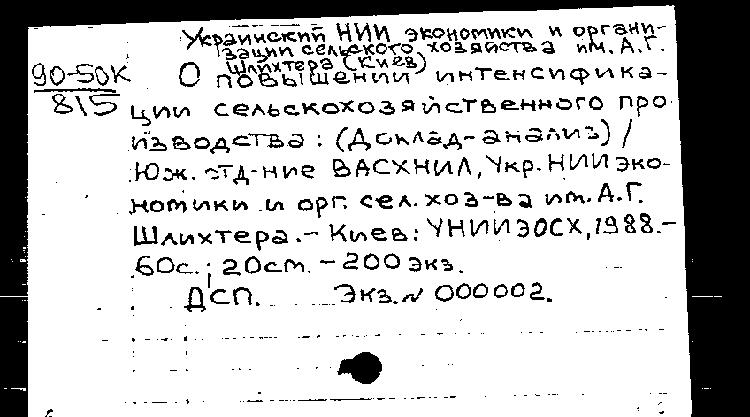 Украинский НИИ экономики и органи-
зации сельского хозяйства им. А.Г.
Шлихтера (Киев)
90-50К
815
О повышении интенсифика-
ции сельскохозяйственного про
изводства: (Доклад-анализ) /
Юж. отд-ние ВАСХНИЛ, Укр. НИИ эко-
номики и орг. сел. хоз-ва им. А.Г.
Шлихтера. - Киев: УНИИЭОСХ, 1988. -
60с.; 20см. - 200 экз.
ДСП. Экз. № 000002.